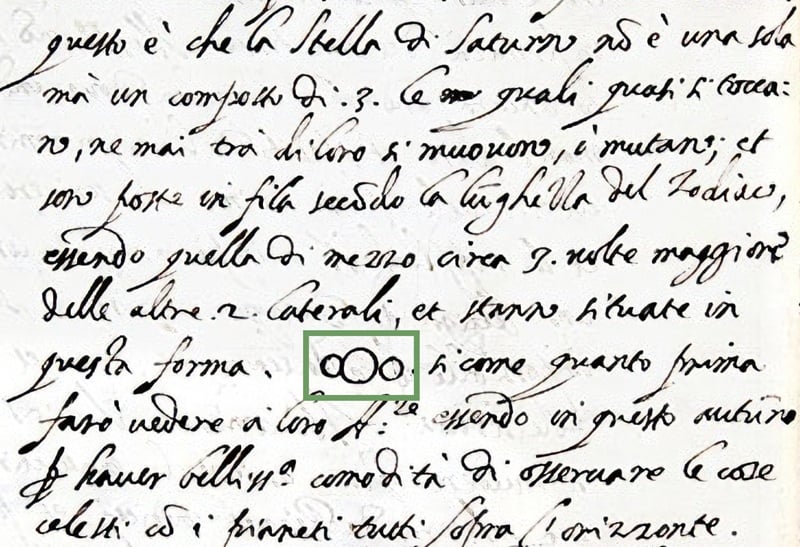 questo è che la Stella di Saturno nõ è una sola
mà un composto di .3. le quali quasi si tocca:
no, ne mai trà di loro si muovono, ò mutano; et
sono poste in fila secõdo la lũghezza del Zodiaco,
essendo quella di mezzo circa 3. volte maggiore
delle altre .2. laterali, et stanno situate in
questa forma. oOo. si come quanto prima
farò vedere a loro AA.ze essendo in questo autũno
ꝑ haver belliss.a comodità di osservare le cose
celesti cõ i pianeti tutti sopra l'orizzonte.